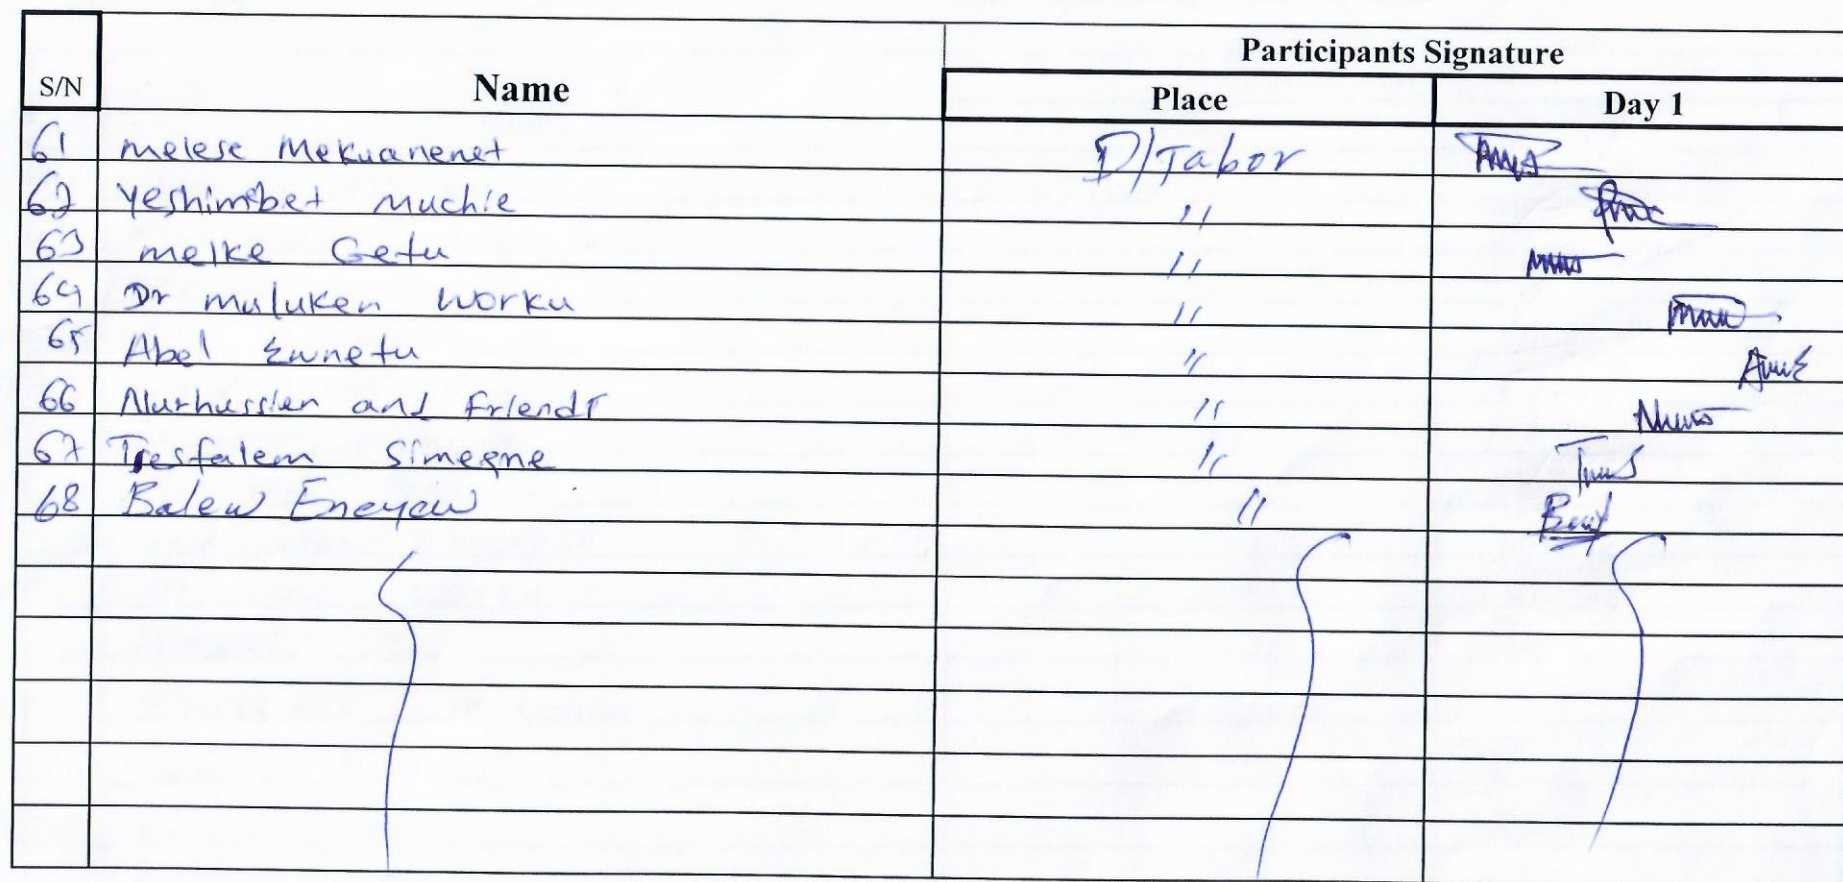 Participants Signature
S/N Name Place Day 1
61 Melese Mekuanenet D/Tabor
62 Yeshimbet Muchie "
63 Melke Getu "
64 Dr Muluken Worku "
65 Abel Ewnetu "
66 Nurhussien and Friends "
67 Tesfalem Simegne "
68 Balew Eneyew "